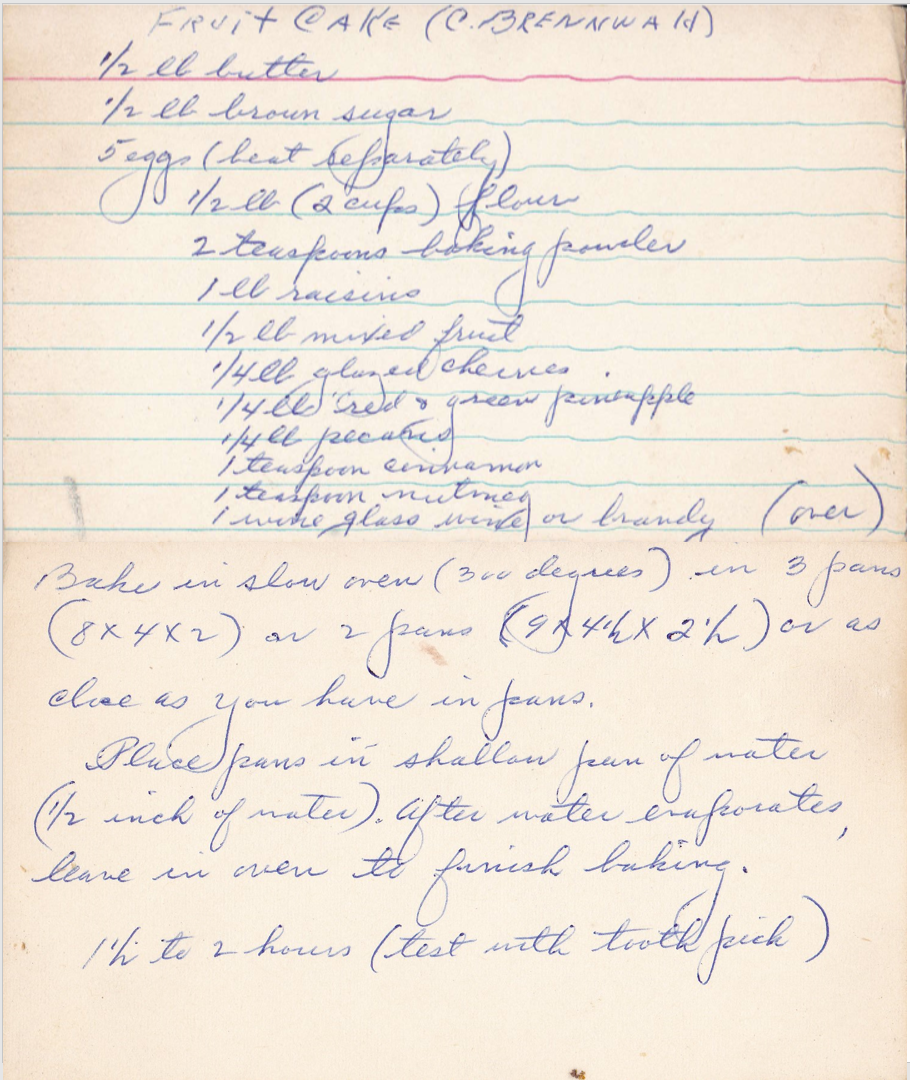 FRUIT CAKE (C. BRENNWALD)
1/2 lb butter
1/2 lb brown sugar
5 eggs (beat separately)
1/2 lb (2 cups) flour
2 teaspoons baking powder
1 lb raisins
1/2 lb mixed fruit
1/4 lb glazed cherries.
1/4 lb red & green pineapple
1/4 lb pecans
1 teaspoon cinnamon
1 teaspoon nutmeg
1 wine glass wine or brandy (over)
Bake in slow oven (300 degrees) in 3 pans
(8 x 4 x 2) or 2 pans (9 x 4 1/2 x 2 1/2) or as
cloe as you have in pans.
Place pans in shallow pan of water
(1/2 inch of water). After water evaporates,
leave in oven to finish baking.
1 1/2 to 2 hours (test with tooth pick)